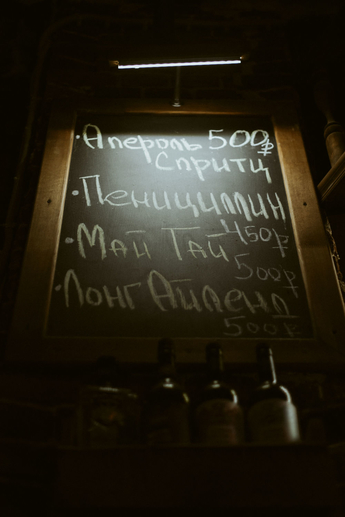 · Апероль 500₽
Спритц
· Пеницилин
450₽
· Май Тай
500₽
· Лонг Айленд
500₽